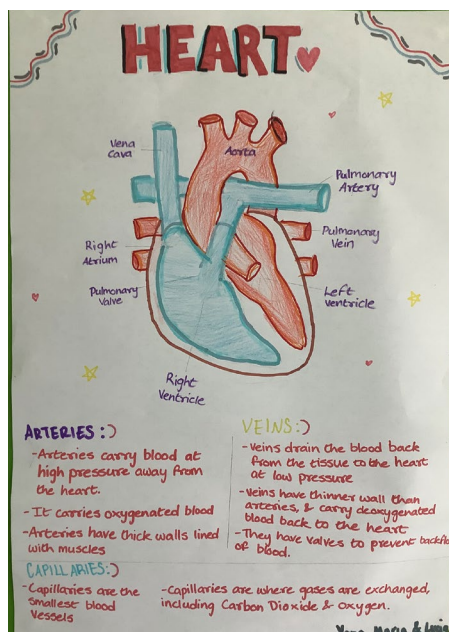 HEART
Vena
Cava
Aorta
Pulmonary
Artery
Pulmonary
Vein
Right
Atrium
Pulmonary
Valve
Left
Ventricle
Right
Ventricle
ARTERIES:)
-Arteries carry blood at
high pressure away from
the heart.
-It carries oxygenated blood
-Arteries have thick walls lined
with muscles
VEINS:)
-Veins drain the blood back
from the tissue to the heart
at low pressure
-Veins have thinner wall than
arteries, & carry deoxygenated
blood back to the heart
-They have valves to prevent backflo
of blood.
CAPILLARIES:)
-Capillaries are the
smallest blood
vessels
-Capillaries are where gases are exchanged,
including Carbon Dioxide & Oxygen.